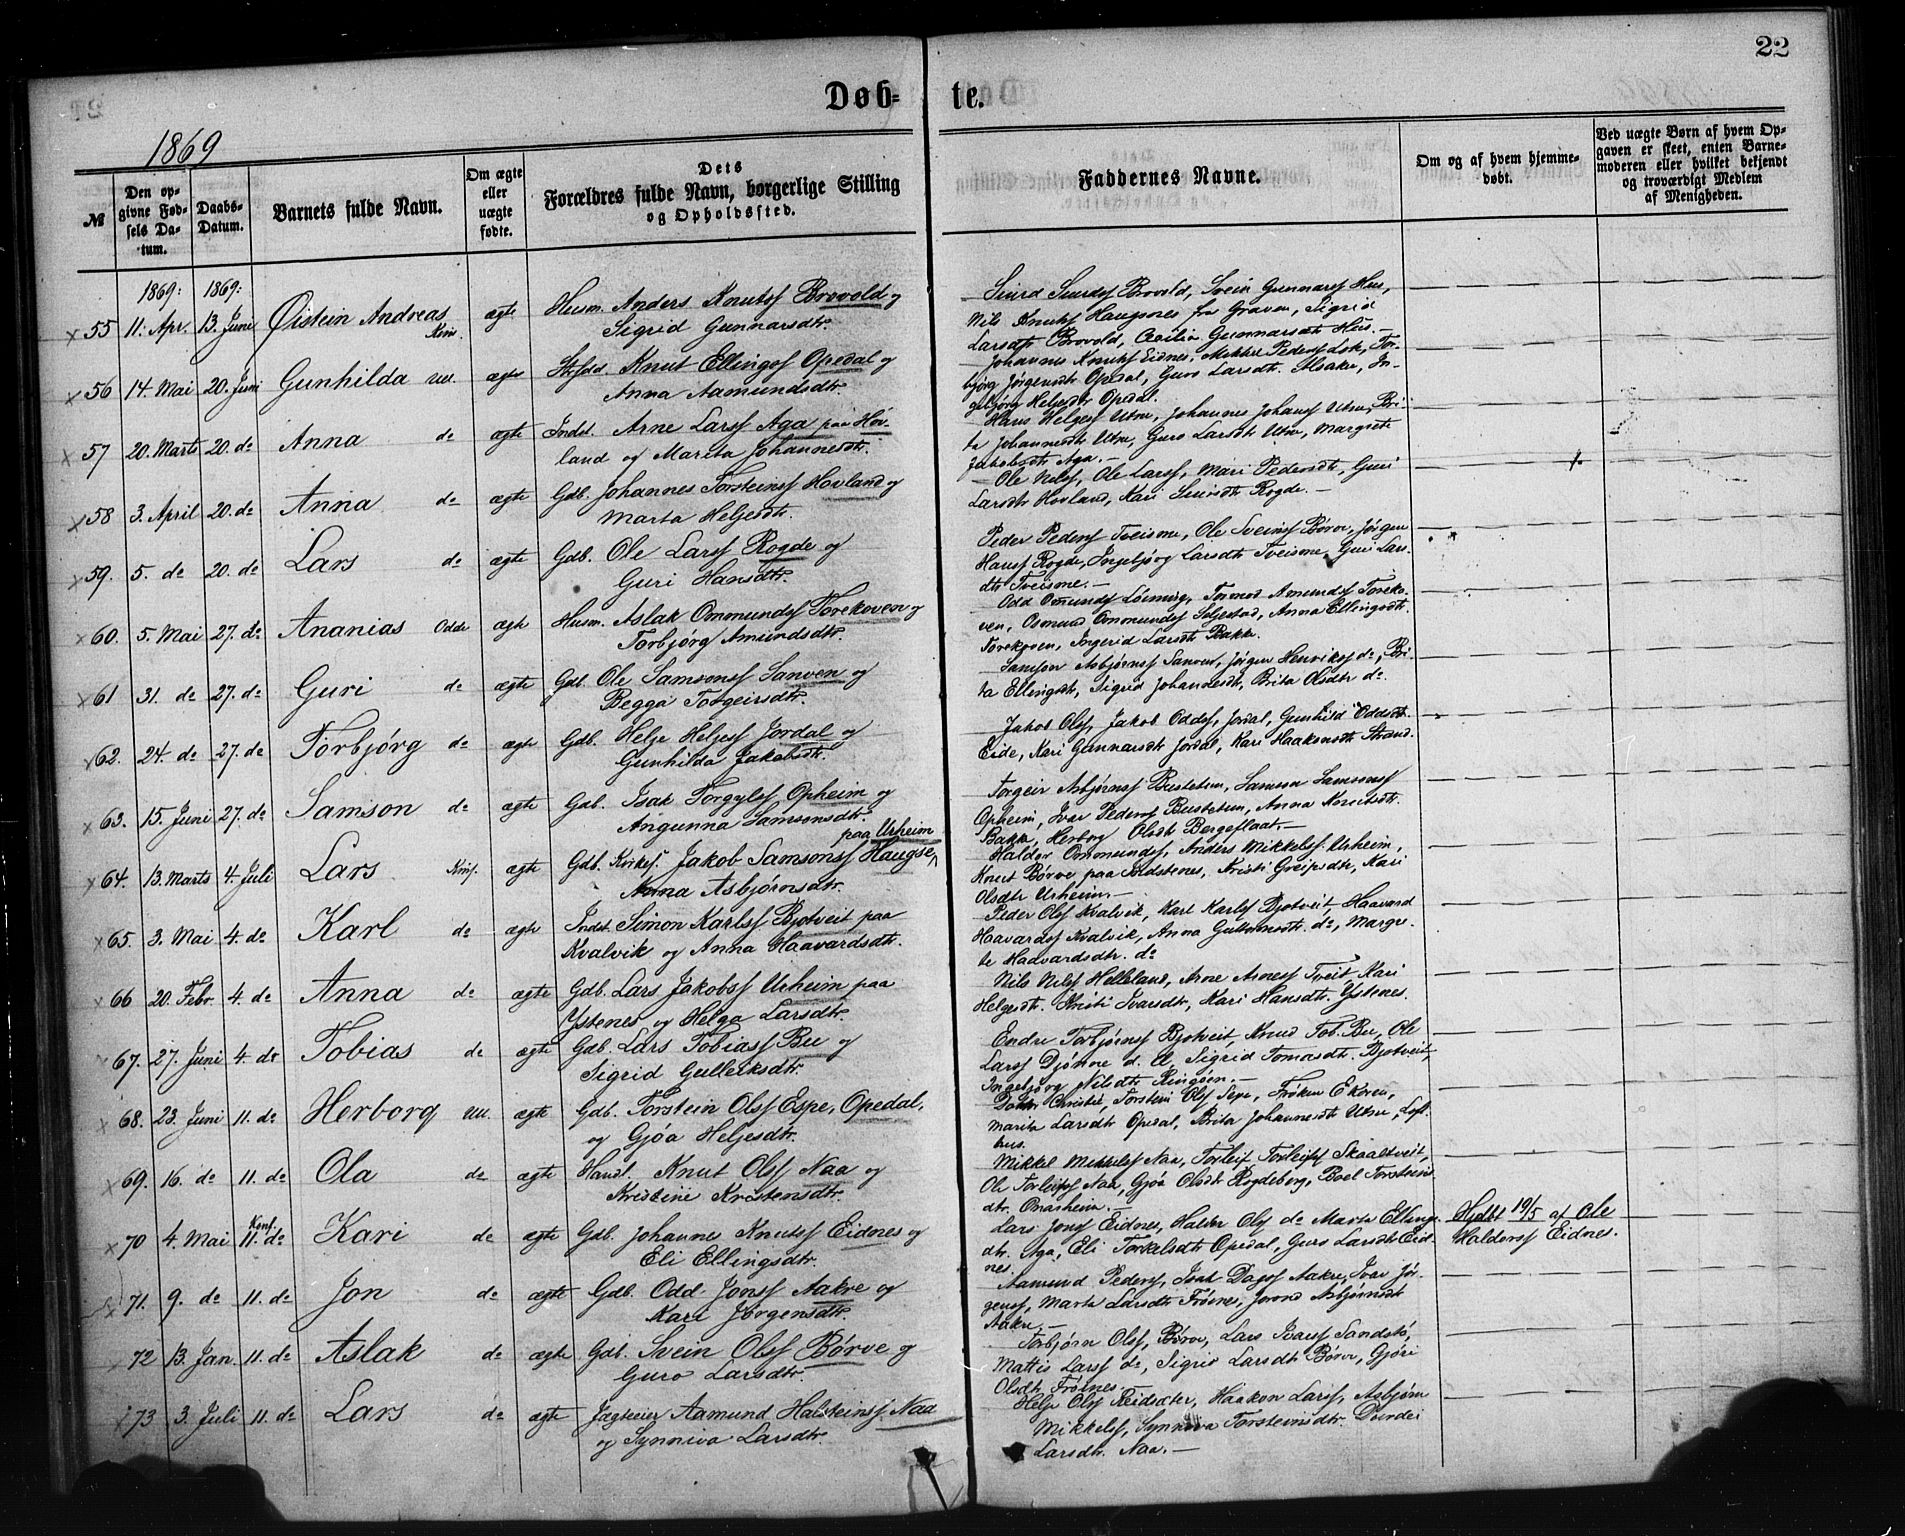 22
Døb- te.
1869
№
Den opgivne Fødsels Datum.
Daabs-Datum.
Barnets fulde Navn.
Om ægte eller uægte fødte.
Dets Forældres fulde Navn, borgerlige Stilling og Opholdssted.
Faddernes Navne.
Om og af hvem hjemmedøbt.
Ved uægte Børn af hvem Opgaven er skeet, enten Barnemoderen eller hvilket bekjendt og troværdigt Medlem af Menigheden.
1869: 1869:
55 11. Apr. 13. Juni Øistein Andreas Kins. ægte Husm. Anders Knutsf Brovold og
Sigrid Gunnarsdtr.
Sjurd Sjurdsf Brovold, Svein Gunnarsf Hus,
Nils Knutsf Haugsnes fra Graven, Sigrid
Larsdtr Brovold, Cecilia Gunnarsdtr Hus.-
56 14. Mai 20. Juni Gunhilda Ull. ægte Knut Ellingsf Opedal og
Anna Aamundsdtr.
Johannes Knutsf Eidnes, Mikkel Pedersf Lok, Tor-
bjørg Jørgensdtr Opedal, Guro Larsdtr. Alsaker, In-
gebjørg Helgesdtr Opedal.
57 20. Marts 20. do Anna do ægte Indst. Arne Larsf Aga paa Hov-
land og Marita Johannesdtr.
Hans Helgesf Utne, Johannes Johansf Utne, Bri-
ta Johannesdtr Utne, Guro Larsdtr Utne, Margrete
Jakobsdtr Aga.-
58 3. April 20. do Anna do ægte Gdb. Johannes Torsteinsf Hovland og
Marta Heljesdtr.
Ole Nilsf, Ole Larsf, Mari Pedersdtr, Guri
Larsdtr Hovland, Kari Sjursdtr Rogde.-
59. 5. do 20. do Lars do ægte Gdb. Ole Larsf Rogde og
Guri Hansdtr.
Peder Pedersf Tveisme, Ole Sveinsf Børve, Jørgen
Hansf Rogde, Ingebjørg Larsdtr Tveisme, Guri Lars-
dtr Tveisme.-
60. 5. Mai 27. do Ananias Odde ægte Husm. Aslak Ommundsf Torekoven og
Torbjørg Amundsdtr.
Odd Omundsf Tormod Amundsf Toreko-
ven, Osmund Ommundsf Seljestad, Anna Ellingsdtr.
Torekoven, Ingerid Larsdtr Bakke.
61 31. do 27. do Guri do ægte Gdb. Ole Samsonsf Sanven og
Begga Torgeirsdtr.
Samson Asbjørnsf Sanven, Jørgen Henriksf do, Bri-
ta Ellingsdtr, Sigrid Johannesdtr, Brita Olsdtr do.
62. 24. do 27. do Torbjørg do ægte Gdb. Helje Heljesf Jordal og
Gunhilda Jakobsdtr.
Jakob Olsf, Jakob Oddsf, Jordal, Gunhild Oddsdtr.
Eide, Kari Gunnarsdtr Jordal, Kari Haakonsdtr Strand.
63. 15. Juni 27. do Samson do ægte Gdb. Isak Torgylsf Opheim og
Angunna Samsonsdtr.
Torgeir Asbjørnsf Busteten, Samson Samsonsf
Opheim, Ivar Pedersf Busteten, Anna Knutsdtr.
Bakke, Herborg Olsdtr Bergeflaat.-
64. 13. Marts 4. Juli Lars Kins. ægte Gdb. Kirkes. Jakob Samsonsf Haugse paa Urheim
Anna Asbjørnsdtr.
Haldor Ommundsf, Anders Mikkelsf Urheim,
Knut Børve paa Kristi Greipsdtr, Kari
Olsdtr Urheim.-
65. 3. Mai 4. do Karl do ægte Indst. Simon Karlsf Bjotveit paa
Kvalvik og Anna Haavardsdtr.
Peder Olsf Kvalvik, Karl Karlsf Bjotveit, Haavard
Haavardsf Kvalvik, Anna do, Margre-
te Haavardsdtr. do
66 20. Febr. 4. do Anna do ægte Gdb. Lars Jakobsf Urheim paa
Ystenes og Helga Larsdtr.
Nils Nilsf Helleland, Arne Arnesf Tveit, Kari
Helgesdtr. Kristi Ivarsdtr, Kari Hansdtr. Ystenes.
67. 27. Juni 4. do Tobias do ægte Gdb. Lars Tobiasf Bu og
Sigrid Gulleiksdtr.
Endre Torbjørnsf Bjotveit, Knud Tob. Bu, Ole
Larsf Djønne d. Sigrid Tomasdtr. Bjotveit,
Ingebjørg Nilsdtr Ringøen.-
68. 23. Juni 11. do Herborg Ull. ægte Gdb. Torstein Olsf Espe, Opedal,
og Gjøa Heljesdtr.
Christie, Torstein Olsf Espe, Frøken E Koren,
Marita Larsdtr Opedal, Brita Johannesdtr Utne, Loft-
hus.
69. 16. do 11. do Ola do ægte Handl. Knut Olsf Naa og
Kristine Kristensdtr.
Mikkel Mikkelsf Naa, Torleif Torleifsf Skaaltveit,
Ole Torleifsf Naa, Gjøa Olsdtr Rogdeberg, Boel Torsteins-
dtr.
70 4. Mai Konf. 11. do Kari do ægte Gdb. Johannes Knutsf Eidnes og
Eli Ellingsdtr.
Lars Jonsf Eidnes, Haldor Olsf do Marta Ellings-
dtr. Aga, Eli Torkelsdtr Opedal, Guro Larsdtr Eid-
nes.
Hjdbt 19/5 af Ole
Haldorsf Eidnes.
71. 9. do 11. do Jon do ægte Gdb. Odd Jonsf Aakre og
Kari Jørgensdtr.
Aamund Pedersf, Isak Dagsf Aakre, Ivar Jør-
gensf, Marta Larsdtr Frønes, Jorond Asbjørnsdtr
Aakre.-
72 13. Jan. 11. do Aslak do ægte Gdb. Svein Olsf Børve og
Guro Larsdtr.
Torbjørn Olsf, Børve, Lars Ivarsf Sandstø,
Mattis Larsf do, Sigrid Larsdtr Børve, Gjøri
Olsdtr Frønes.-
73 3. Juli 11. do Lars do ægte Jagteier Aamund Halsteinsf Naa
og Synneva Larsdtr.
Helje Olsf Reidsæter, Haakon Larsf, Asbjørn
Mikkelsf, Synneva Torsteinsdtr. Durdei
Larsdtr. Naa.-